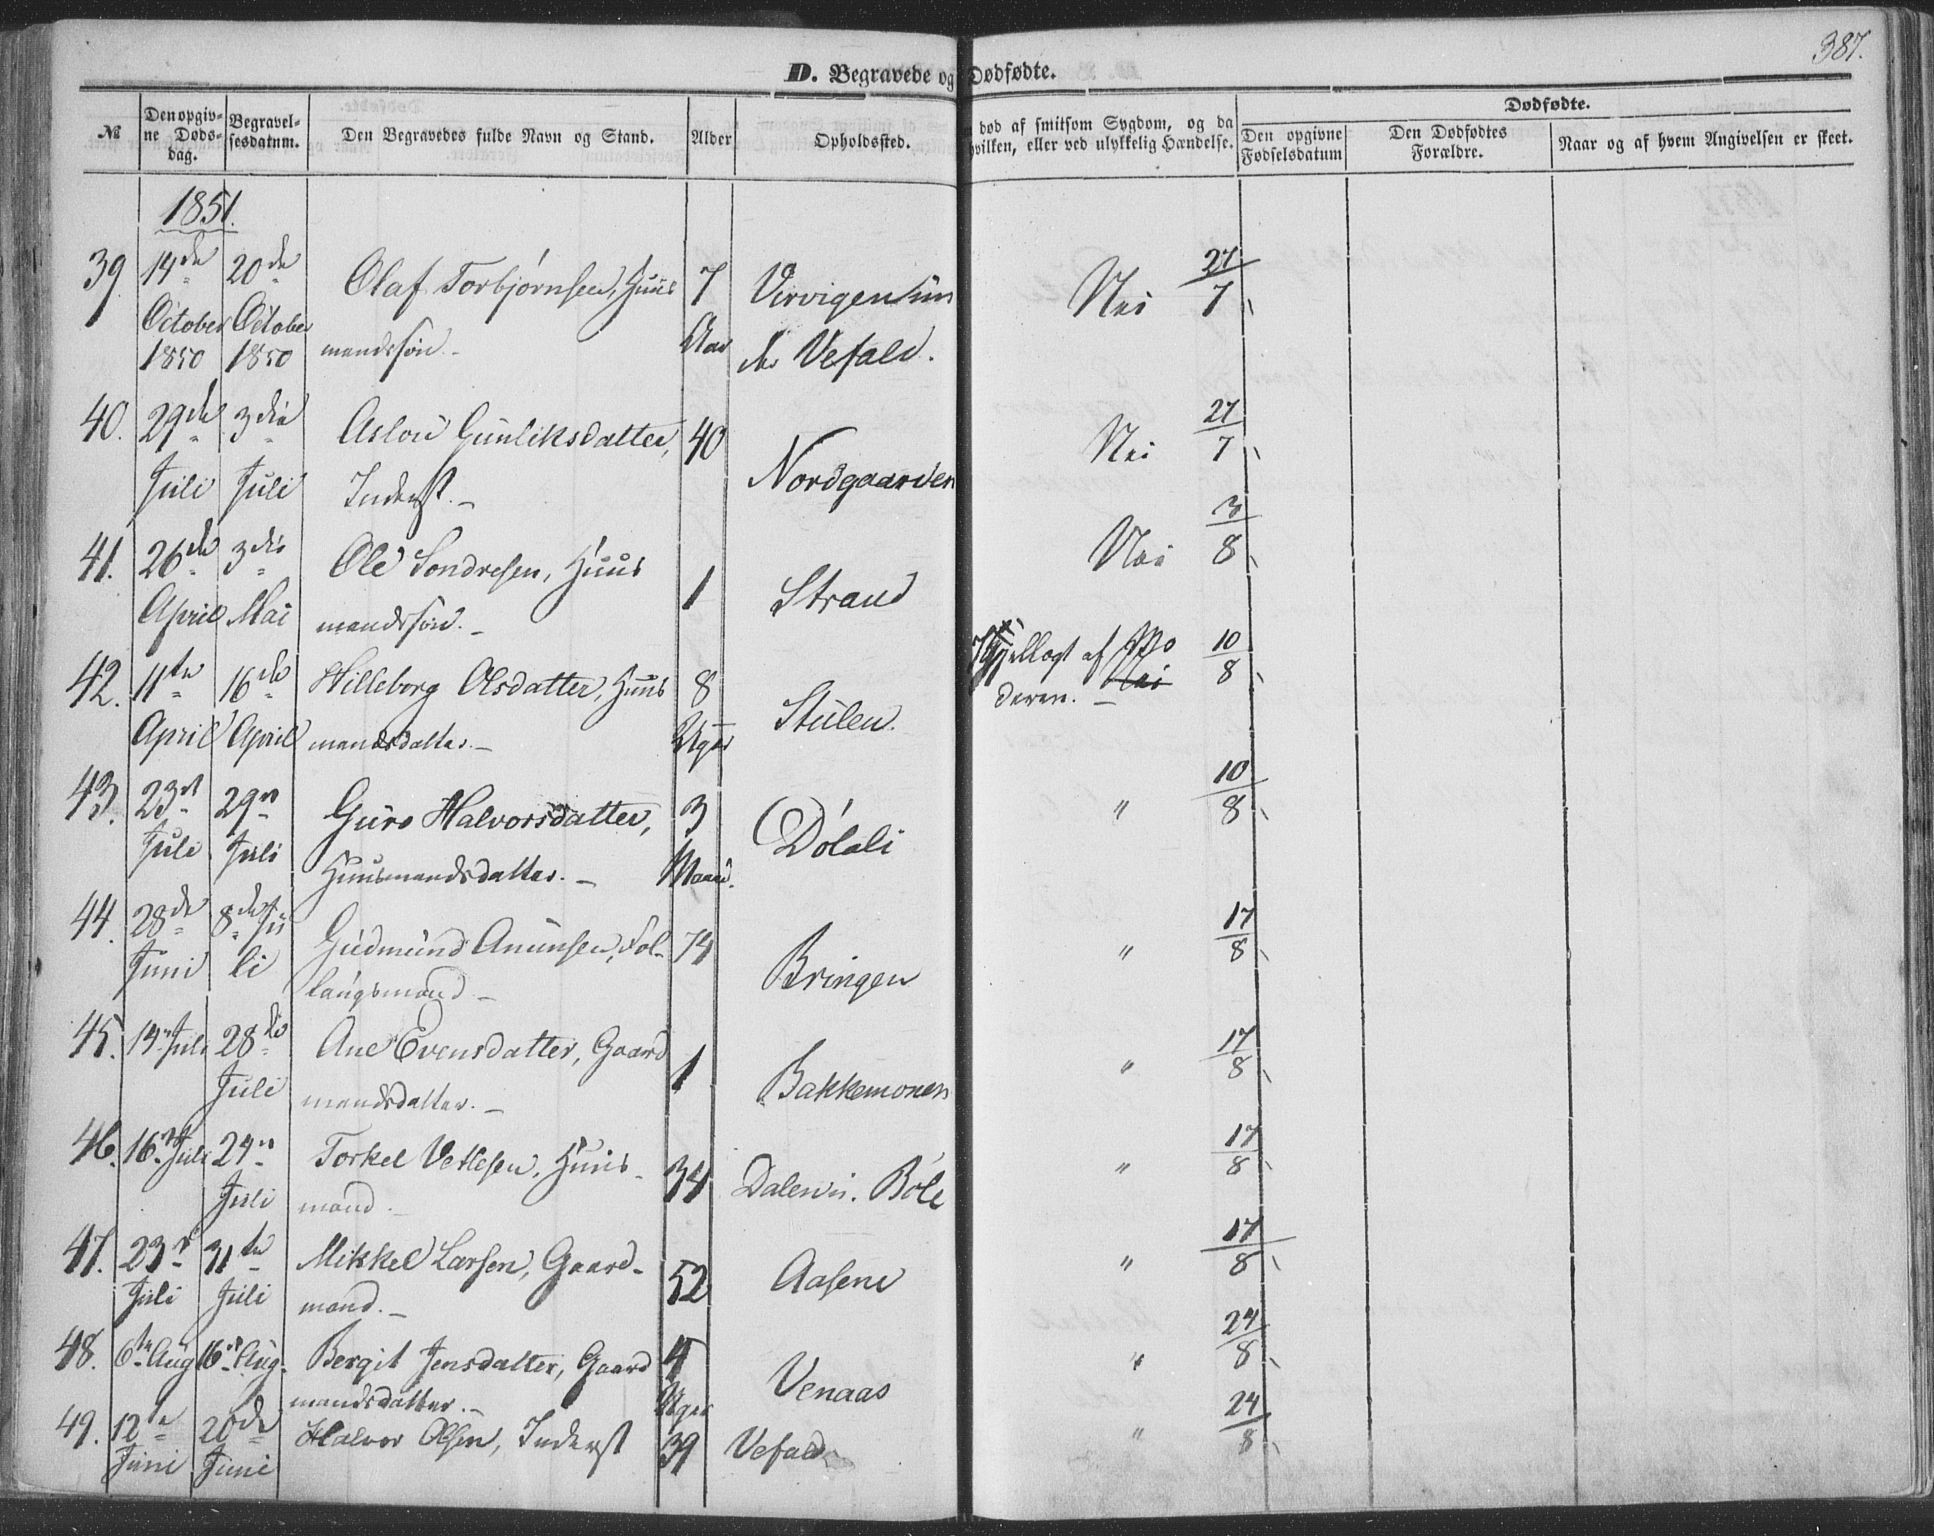 387.
D. Begravede og Dødfødte.
№
Den opgiv-
ne Døds-
dag.
Begravel-
sesdatum.
Den Begravedes fulde Navn og Stand.
Alder
Opholdssted.
død af smitsom Sygdom, og da
hvilken, eller ved ulykkelig Hændelse.
Dødfødte.
Den opgivne
Fødselsdatum
Den Dødfødtes
Forældre.
Naar og af hvem Angivelsen er skeet.
1851.
39 14de 20de Olaf Torbjørnsen, Huus 7 Vervigen un Nei 27/7
October October mandssøn. Aar der Vefald.
1850 1850
40. 29de 3die Aslou Gunliksdatter, 40 Nordgaarden Nei 27/7
Juli Juli Inderst.
41. 26de 3die Ole Sondresen, Huus 1 Strand Nei 3/8
April Mai mandssøn.
42. 11te 16de Hilleborg Olsdatter, Huus 8 Stulen. Ihjellagt af Mo 10/8
April April mandsdatter. Uger deren. Nei
43. 23de 29de Guro Halvorsdatter, 3 Dølali " 10/8
Juli Juli Huusmandsdatter. Maaned.
44. 28de 8de Ju Gudmund Anunsen, Fol- 74 Bringen " 17/8
Juni li laugsmand
45. 14de Juli 28de Ane Evensdatter, Gaard 1 Bakkemonen " 17/8
Juli mandsdatter.
46. 16de Juli 24de Torkel Vetlesen, Huus- 34 Dalen u. Bøle " 17/8
Juli mand.
47. 23de 31te Mikkel Larsen, Gaard- 52 Aasene " 17/8
Juli Juli mand.
48. 6te Aug 16de Aug. Bergit Jensdatter, Gaard 4 Venaas " 24/8
mandsdatter. Uger
49. 12te 20de Halvor Olsen, Inderst 39 Vefald " 24/8
Juni Juni